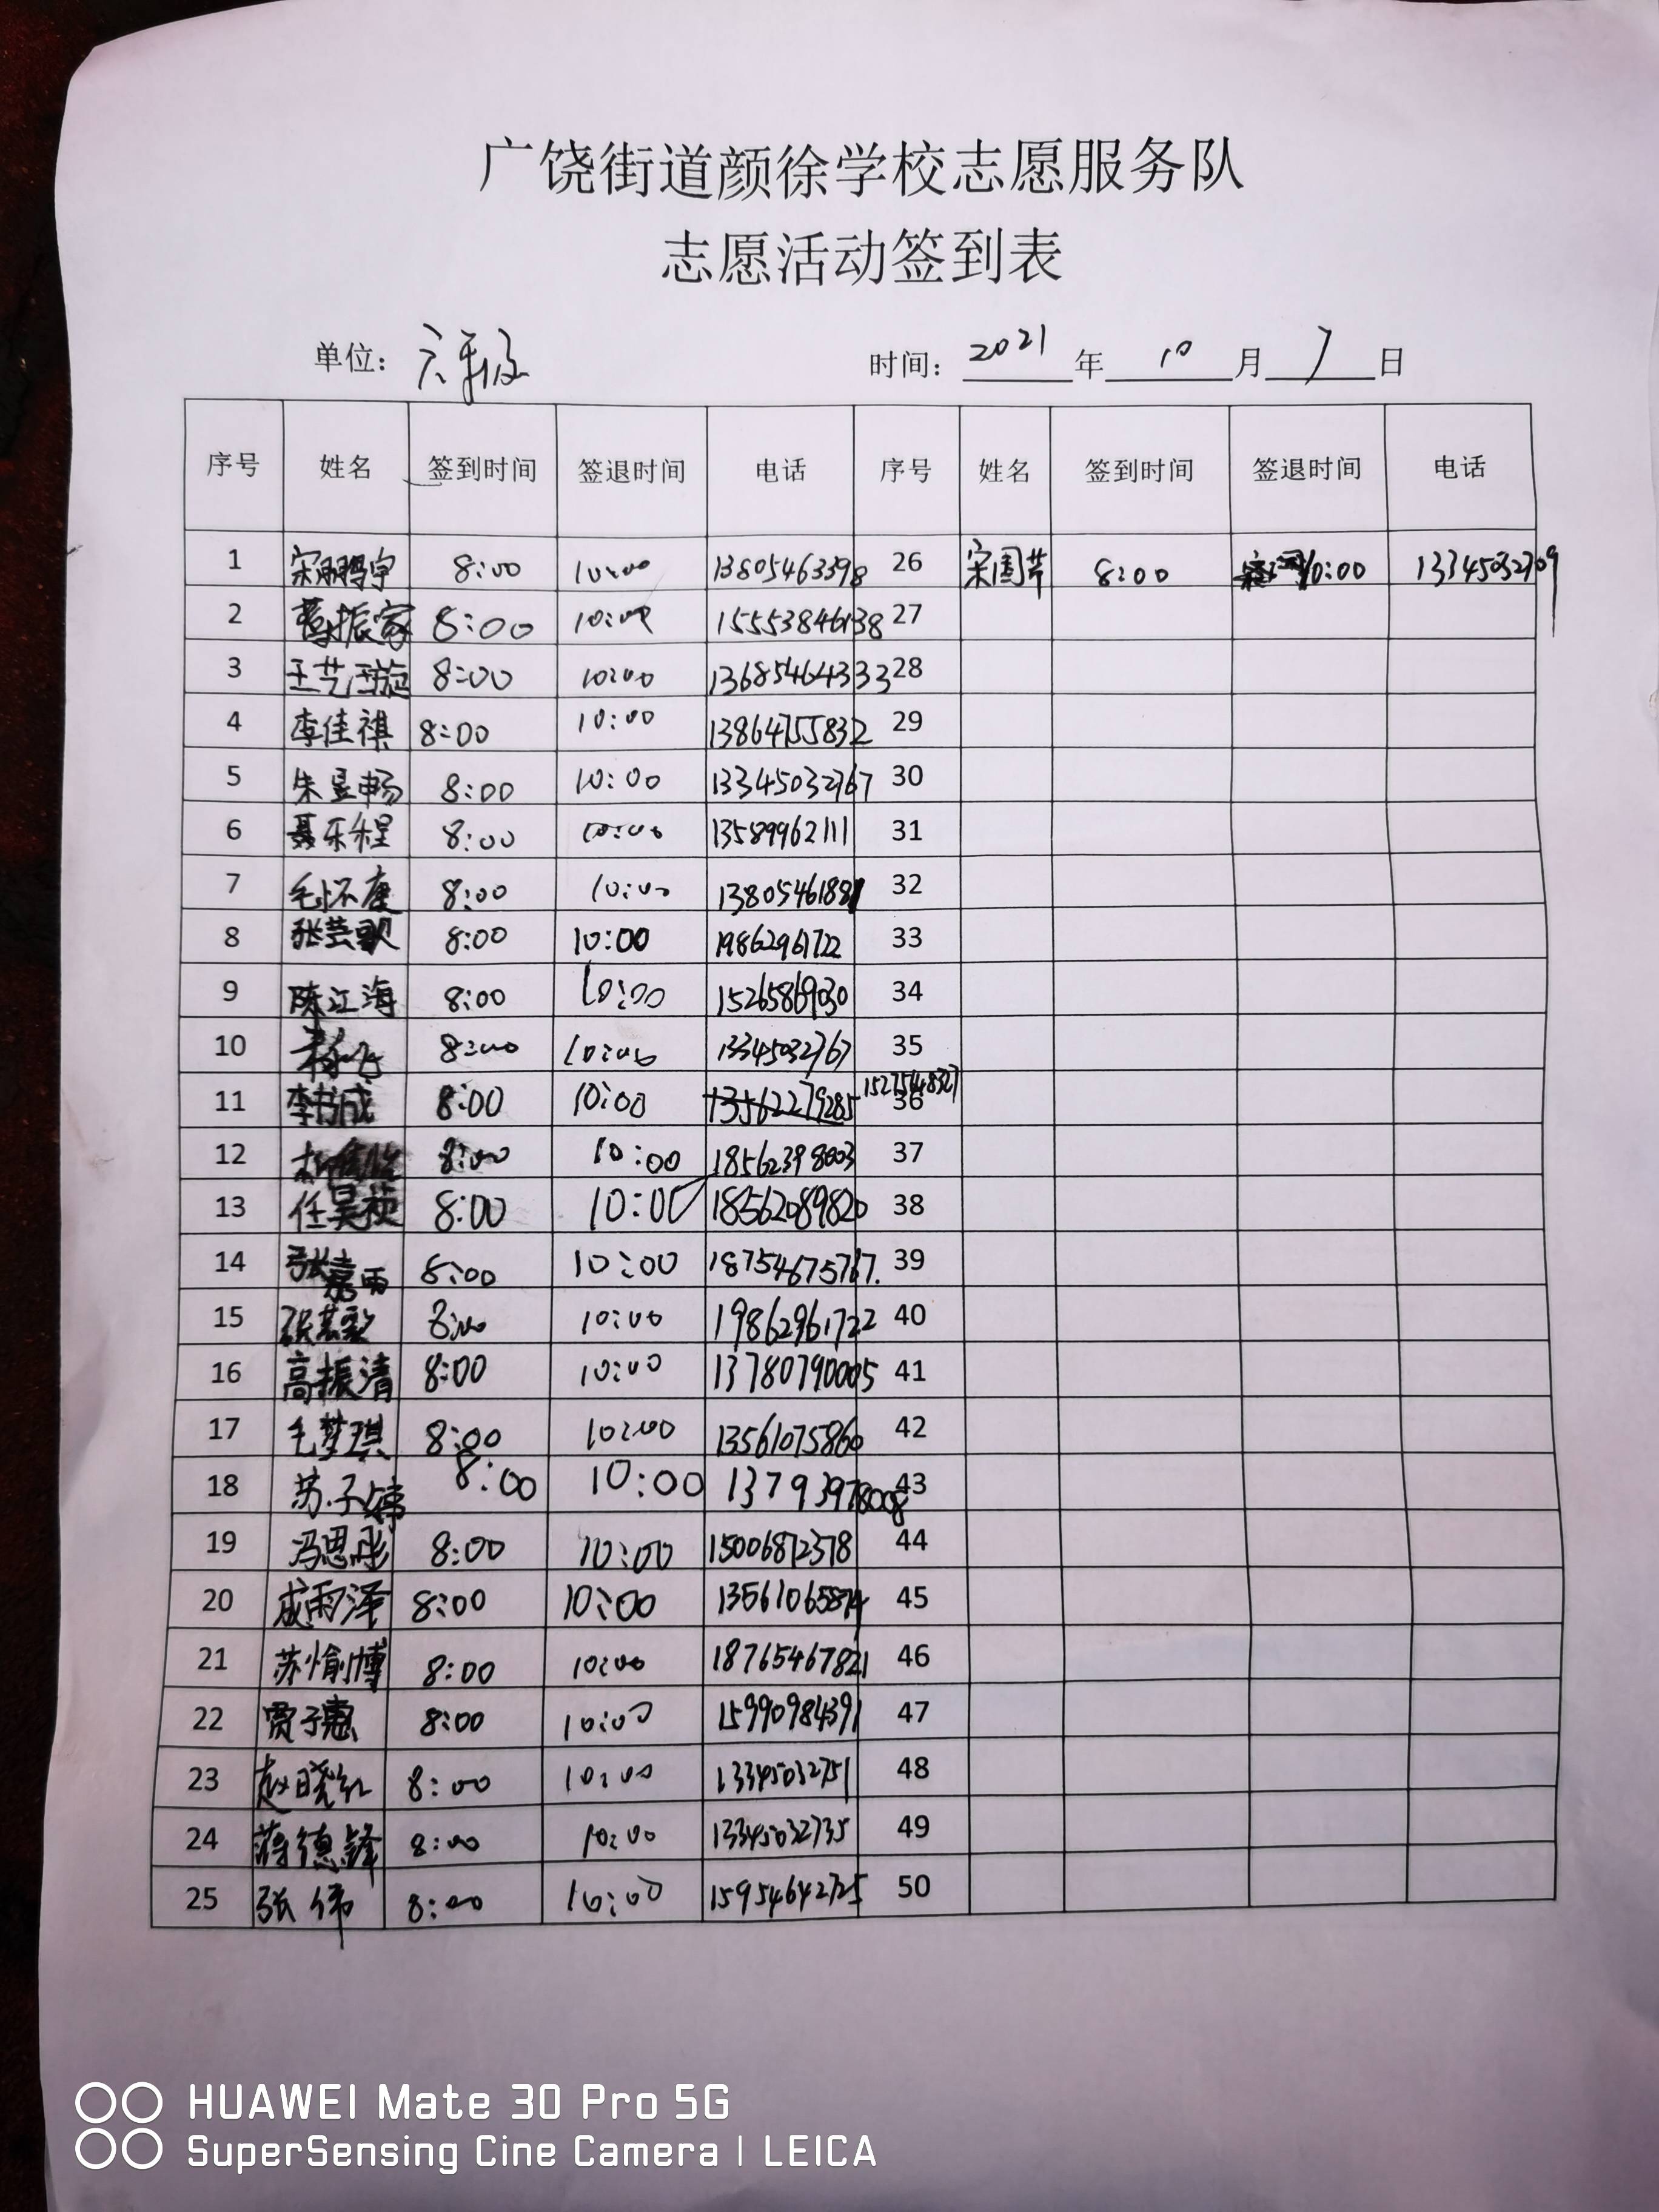 广饶街道颜徐学校志愿服务队
志愿活动签到表
单位：六年级 时间：2021年10月7日
序号 姓名 签到时间 签退时间 电话 序号 姓名 签到时间 签退时间 电话
1 宋鹏宇 8:00 10:00 13805463398 26 宋国芹 8:00 10:00 13345032709
2 振家 8:00 10:00 15553846138 27
3 王艺璇 8:00 10:00 13685464333 28
4 李佳祺 8:00 10:00 13864755832 29
5 朱昱畅 8:00 10:00 13345032767 30
6 聂乐程 8:00 10:00 13589962111 31
7 毛怀庆 8:00 10:00 1380546188 32
8 张芸歌 8:00 10:00 19862961722 33
9 陈江海 8:00 10:00 15265869030 34
10 8:00 10:00 13345032767 35
11 李书成 8:00 10:00 13562279285 15275448327 36
12 8:00 10:00 18562398003 37
13 任昊 8:00 10:00 18562089820 38
14 张嘉雨 8:00 10:00 18754675767. 39
15 张 8:00 10:00 19862961722 40
16 高振清 8:00 10:00 13780790005 41
17 毛梦琪 8:00 10:00 13561075860 42
18 苏子婷 8:00 10:00 13793978008 43
19 冯思彤 8:00 10:00 15006872378 44
20 成雨泽 8:00 10:00 13561065874 45
21 苏愉博 8:00 10:00 18765467821 46
22 贾子惠 8:00 10:00 15990984391 47
23 赵晓红 8:00 10:00 13345032751 48
24 蒋德锋 8:00 10:00 13345032735 49
25 张伟 8:00 10:00 15954642725 50
HUAWEI Mate 30 Pro 5G
SuperSensing Cine Camera | LEICA